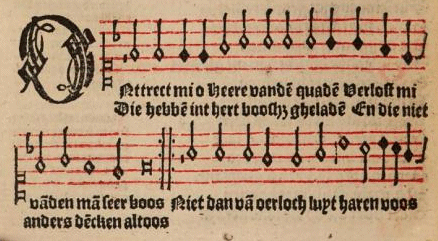 Ontrect mi o Heere vandē quadē Verlost mi
Die hebbē int hert booshz gheladē En die niet
vāden mā seer boos Niet dan vā oerloch luyt haren voos
anders dēcken altoos